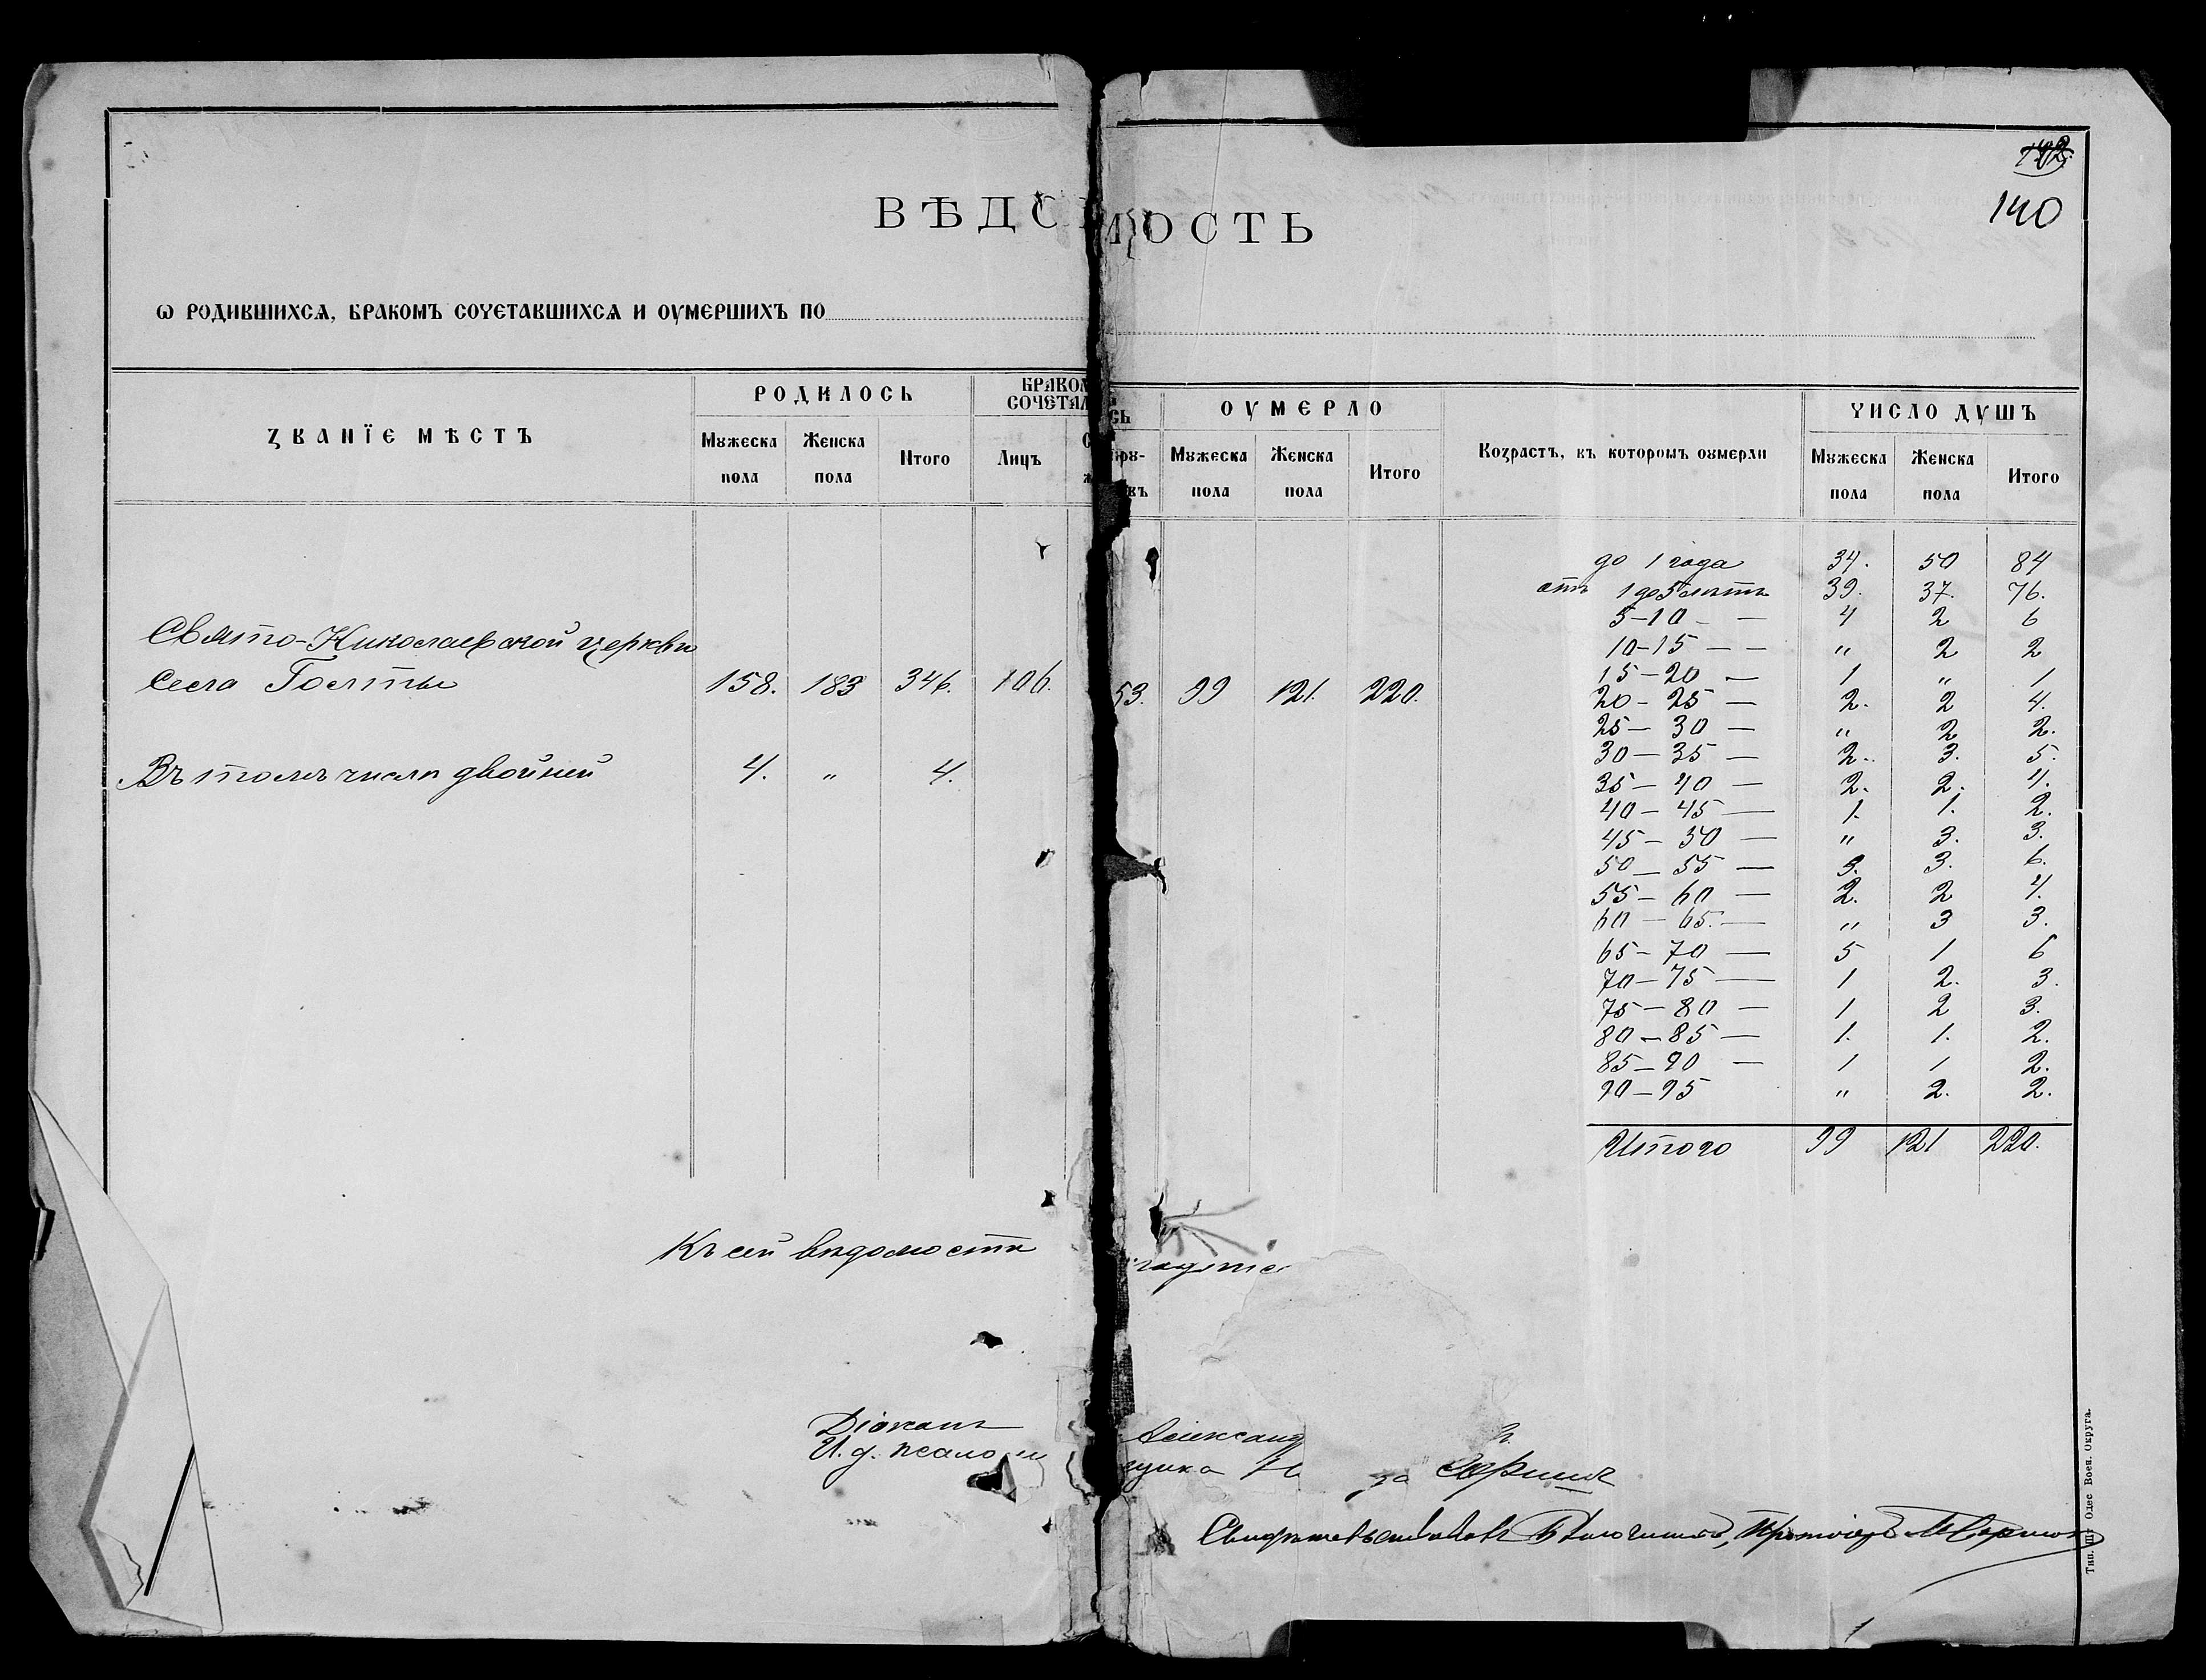 140
ВѢДОМОСТЬ
Ѡ РОДИВШИХСѦ, БРАКОМЪ СОЧЕТАВШИХСѦ И ОУМЕРШИХЪ ПО
ЗВАНЇЕ МѢСТЪ
РОДИЛОСЬ
БРАКОМ
СОЧЕТАЛ СЬ
ОУМЕРЛО
Возрастъ, въ которомъ оумерли
ЧИСЛО ДУШЪ
Мужеска пола
Женска пола
Итого
Лицъ
Мужеска пола
Женска пола
Итого
Мужеска пола
Женска пола
Итого
до 1 года 34. 50 84
отъ 1 до 5 лѣтъ 39. 37. 76.
5-10 - — 4 2 6
Свято-Николаевской церкви
10-15 — — " 2 2
села Гояны 158. 183 346. 106. 53. 99 121. 220.
15-20 — 1 " 1
20-25 — 2. 2 4.
25-30 — " 2 2.
30-35 — 2. 3. 5.
Въ томъ числѣ двойней 4. " 4.
35-40 — 2. 2. 4.
40-45 — 1. 1. 2.
45-50 — " 3. 3.
50-55 — 3. 3. 6.
55-60 — 2. 2 4.
60-65. — " 3 3.
65-70 — 5 1 6
70-75 — 1 2. 3.
75-80 — 1 2 3.
80-85 — 1. 1. 2.
85-90 — 1 1 2.
90-95 " 2. 2.
Итого 99 121 220.
Къ сей вѣдомости
Діаконъ Александ
И. д. псало щика
Тип. Шт. Одес. Воен. Округа.